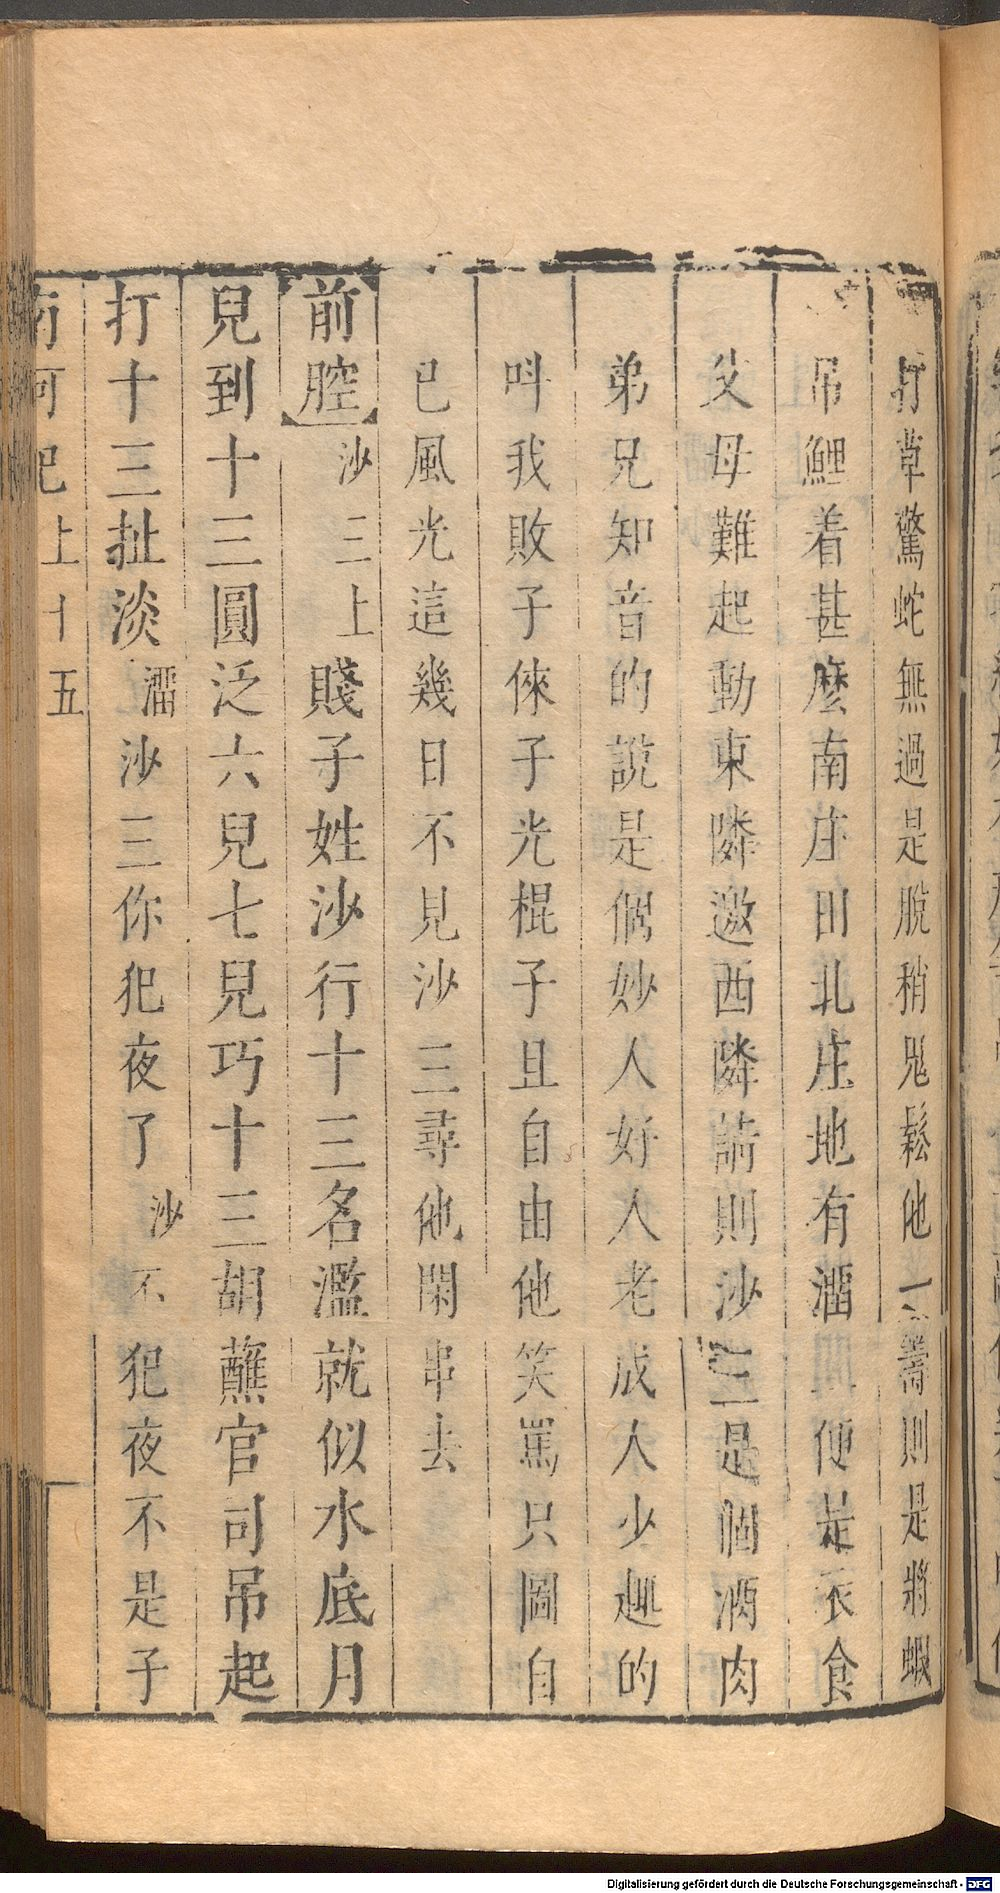 打草驚蛇無過是脫稍鬼鬆他一籌則是將蝦
吊鯉着甚麽南庄田北庄地有溜 便是衣食
父母難起動東隣邀西隣請則沙三是個酒肉
弟兄知音的說是個妙人好人老成人少趣的
呌我敗子倈子光棍子且自由他笑罵只圖自
已風光這幾日不見沙三尋他閑串去
前腔沙三上賤子姓沙行十三名濫就似水底月
兒到十三圓泛六兒七兒巧十三胡蘸官司吊起
打十三扯淡溜沙三你犯夜了沙不犯夜不是子
南柯 上十五
Digitalisierung gefördert durch die Deutsche Forschungsgemeinschaft - DFG